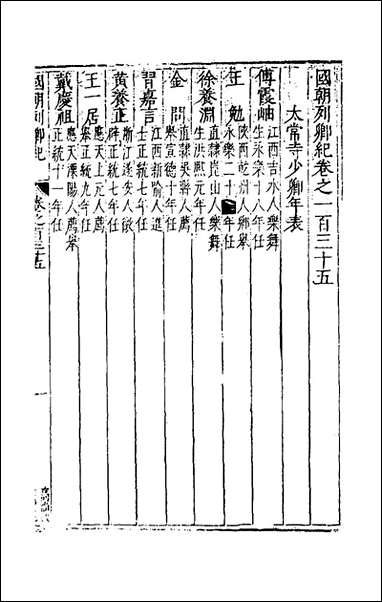 國朝列卿紀卷之一百三十五
太常寺少卿年表
傅霞岫
江西吉水人樂舞
生永樂十八年任
王勉
陝西乾州人鄉舉
永樂二十 年任
徐養淵
直隸崑山人樂舞
生洪熙元年任
金問
直隸吳縣人薦
舉宣德十年任
習嘉言
江西新喻人進
士正統七年任
黄養正
浙江遂安人徵
辟正統七年任
王一居
應天上元人薦
舉正統九年任
戴慶祖
應天溧陽人薦舉
正統十一年任
國朝列卿紀
卷之一百三十五
一